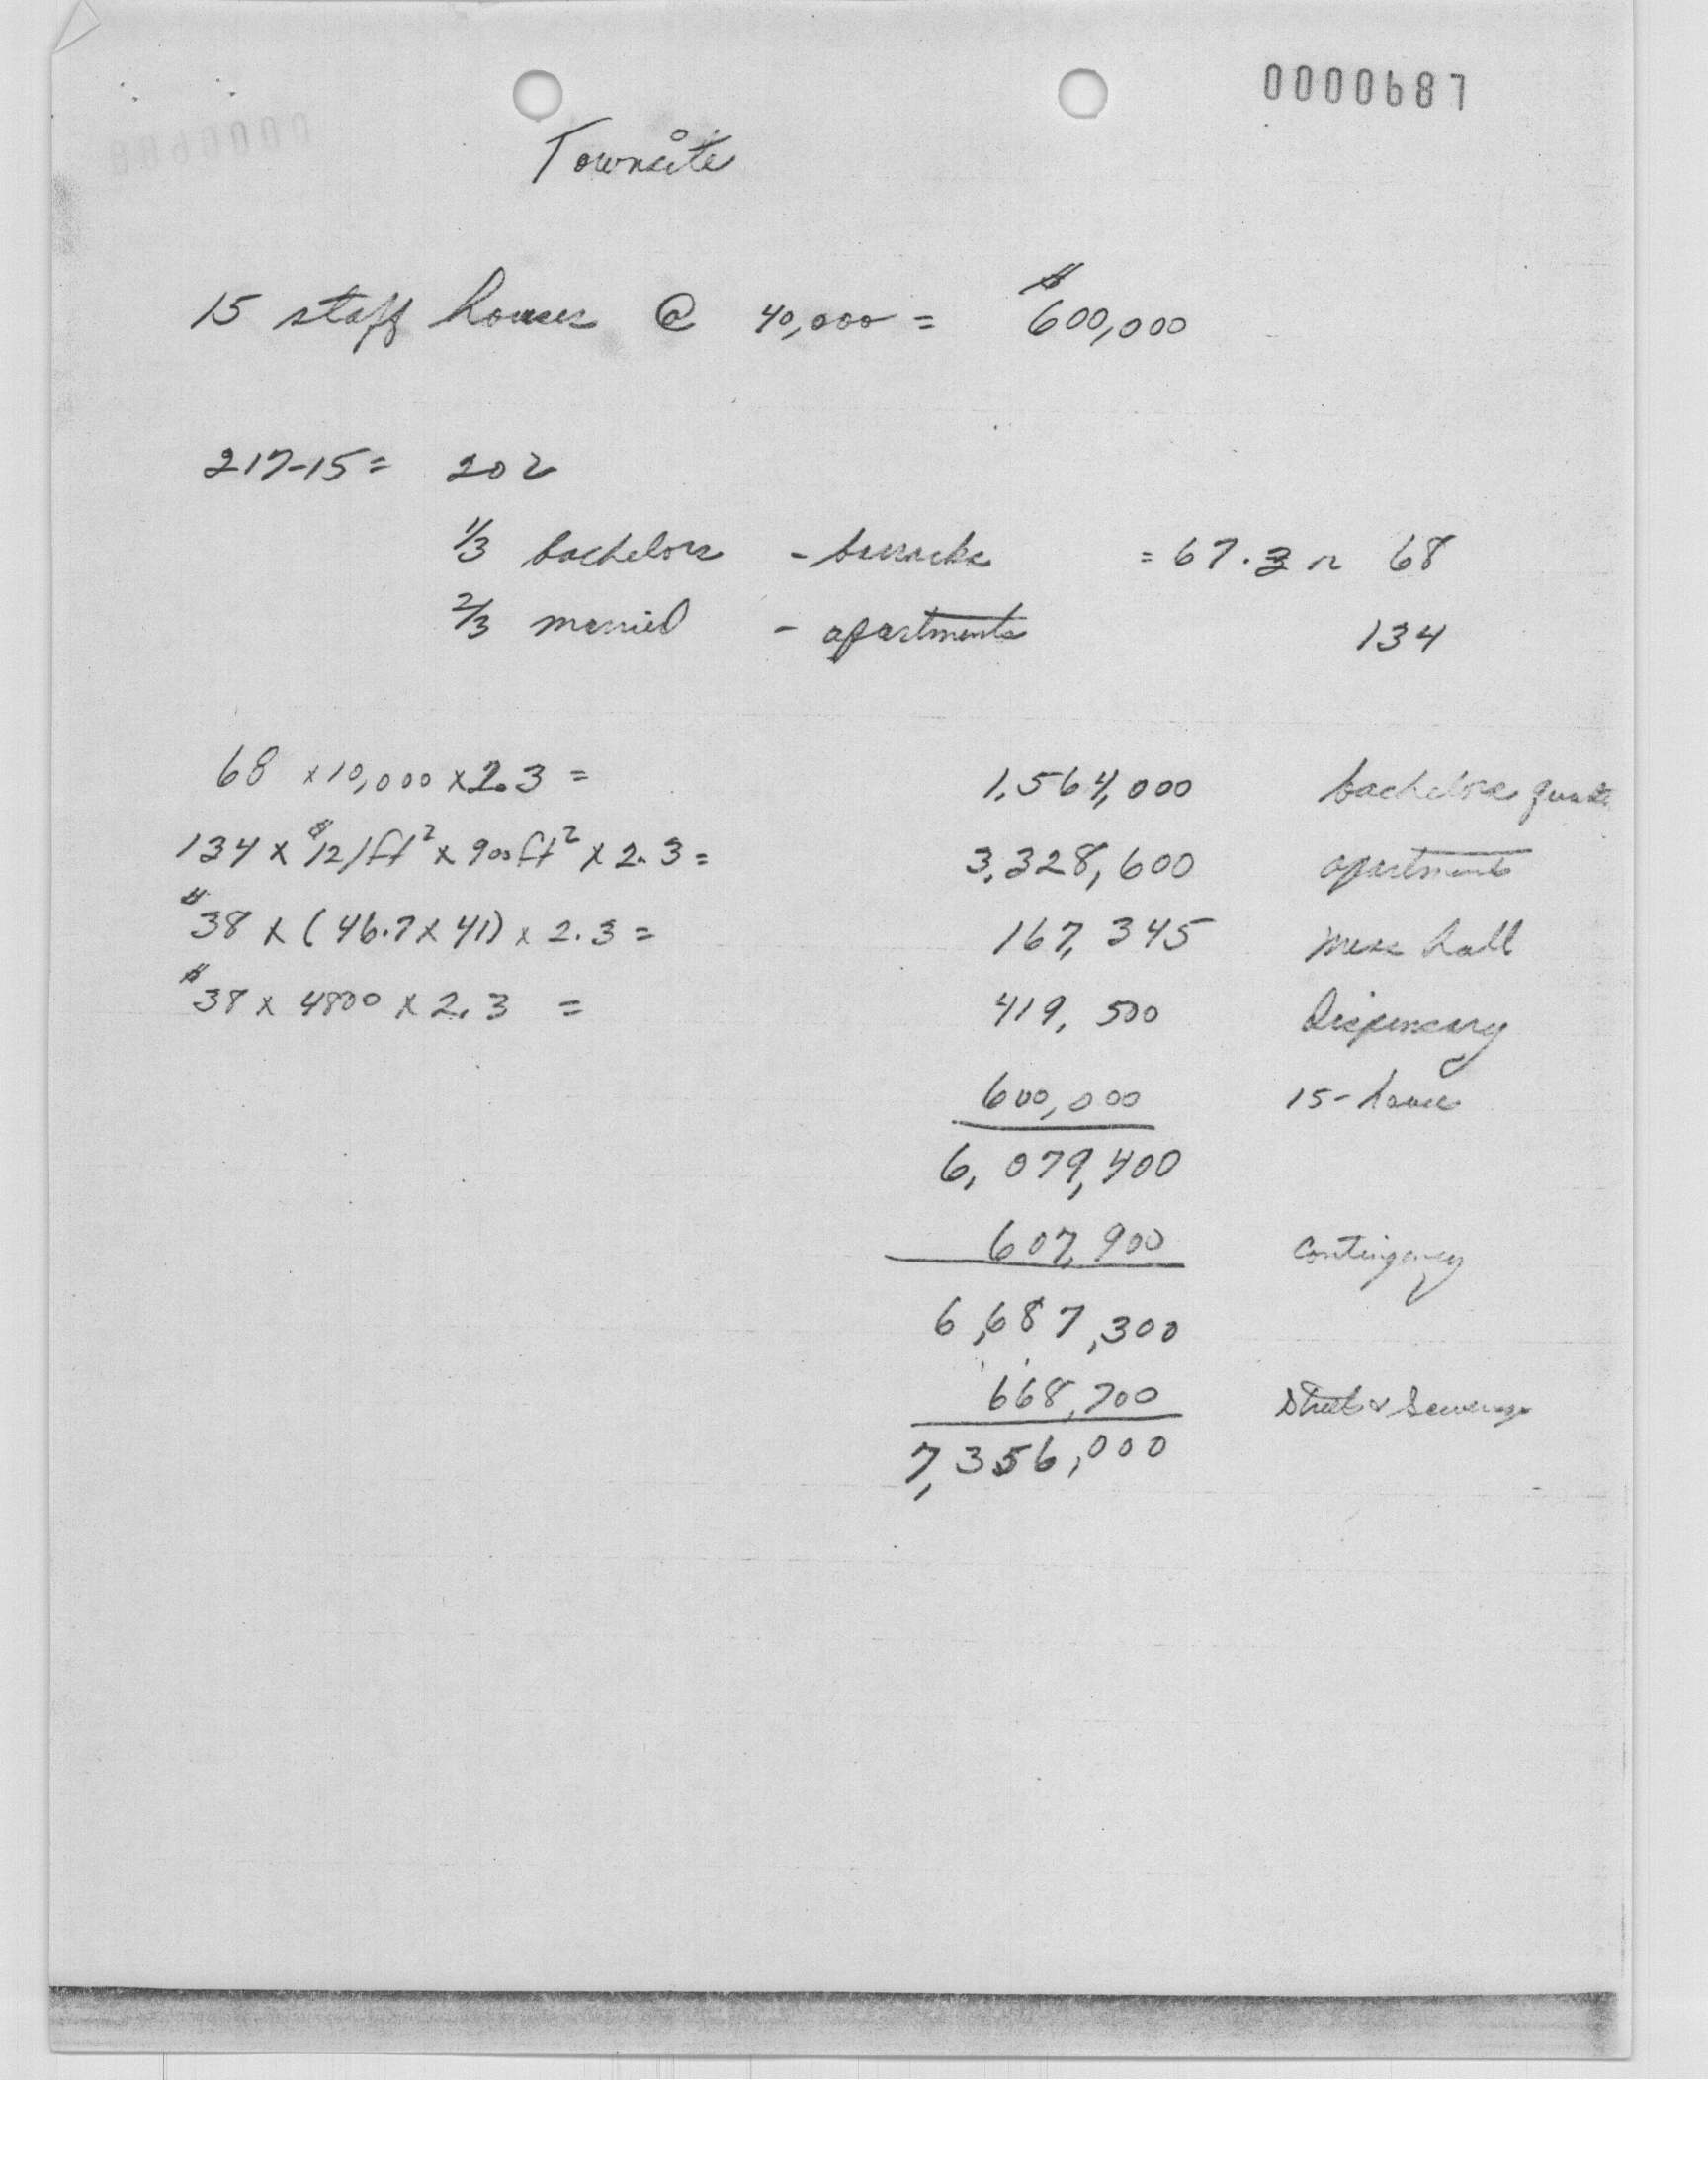 0000687
Townsite
15 staff houses @ 40,000 = $600,000
217-15 = 202
1/3 bachelors - barracks = 67.3 or 68
2/3 married - apartments 134
68 x 10,000 x 2.3 = 1,564,000 bachelors
134 x $12/ft² x 900 ft² x 2.3 = 3,328,600 apartments
$38 x (46.7 x 41) x 2.3 = 167,345 mess hall
$38 x 4800 x 2.3 = 419,500 Dispensary
600,000 15-houses
6,079,400
607,900 Contingency
6,687,300
668,700 Streets & Sewerage
7,356,000